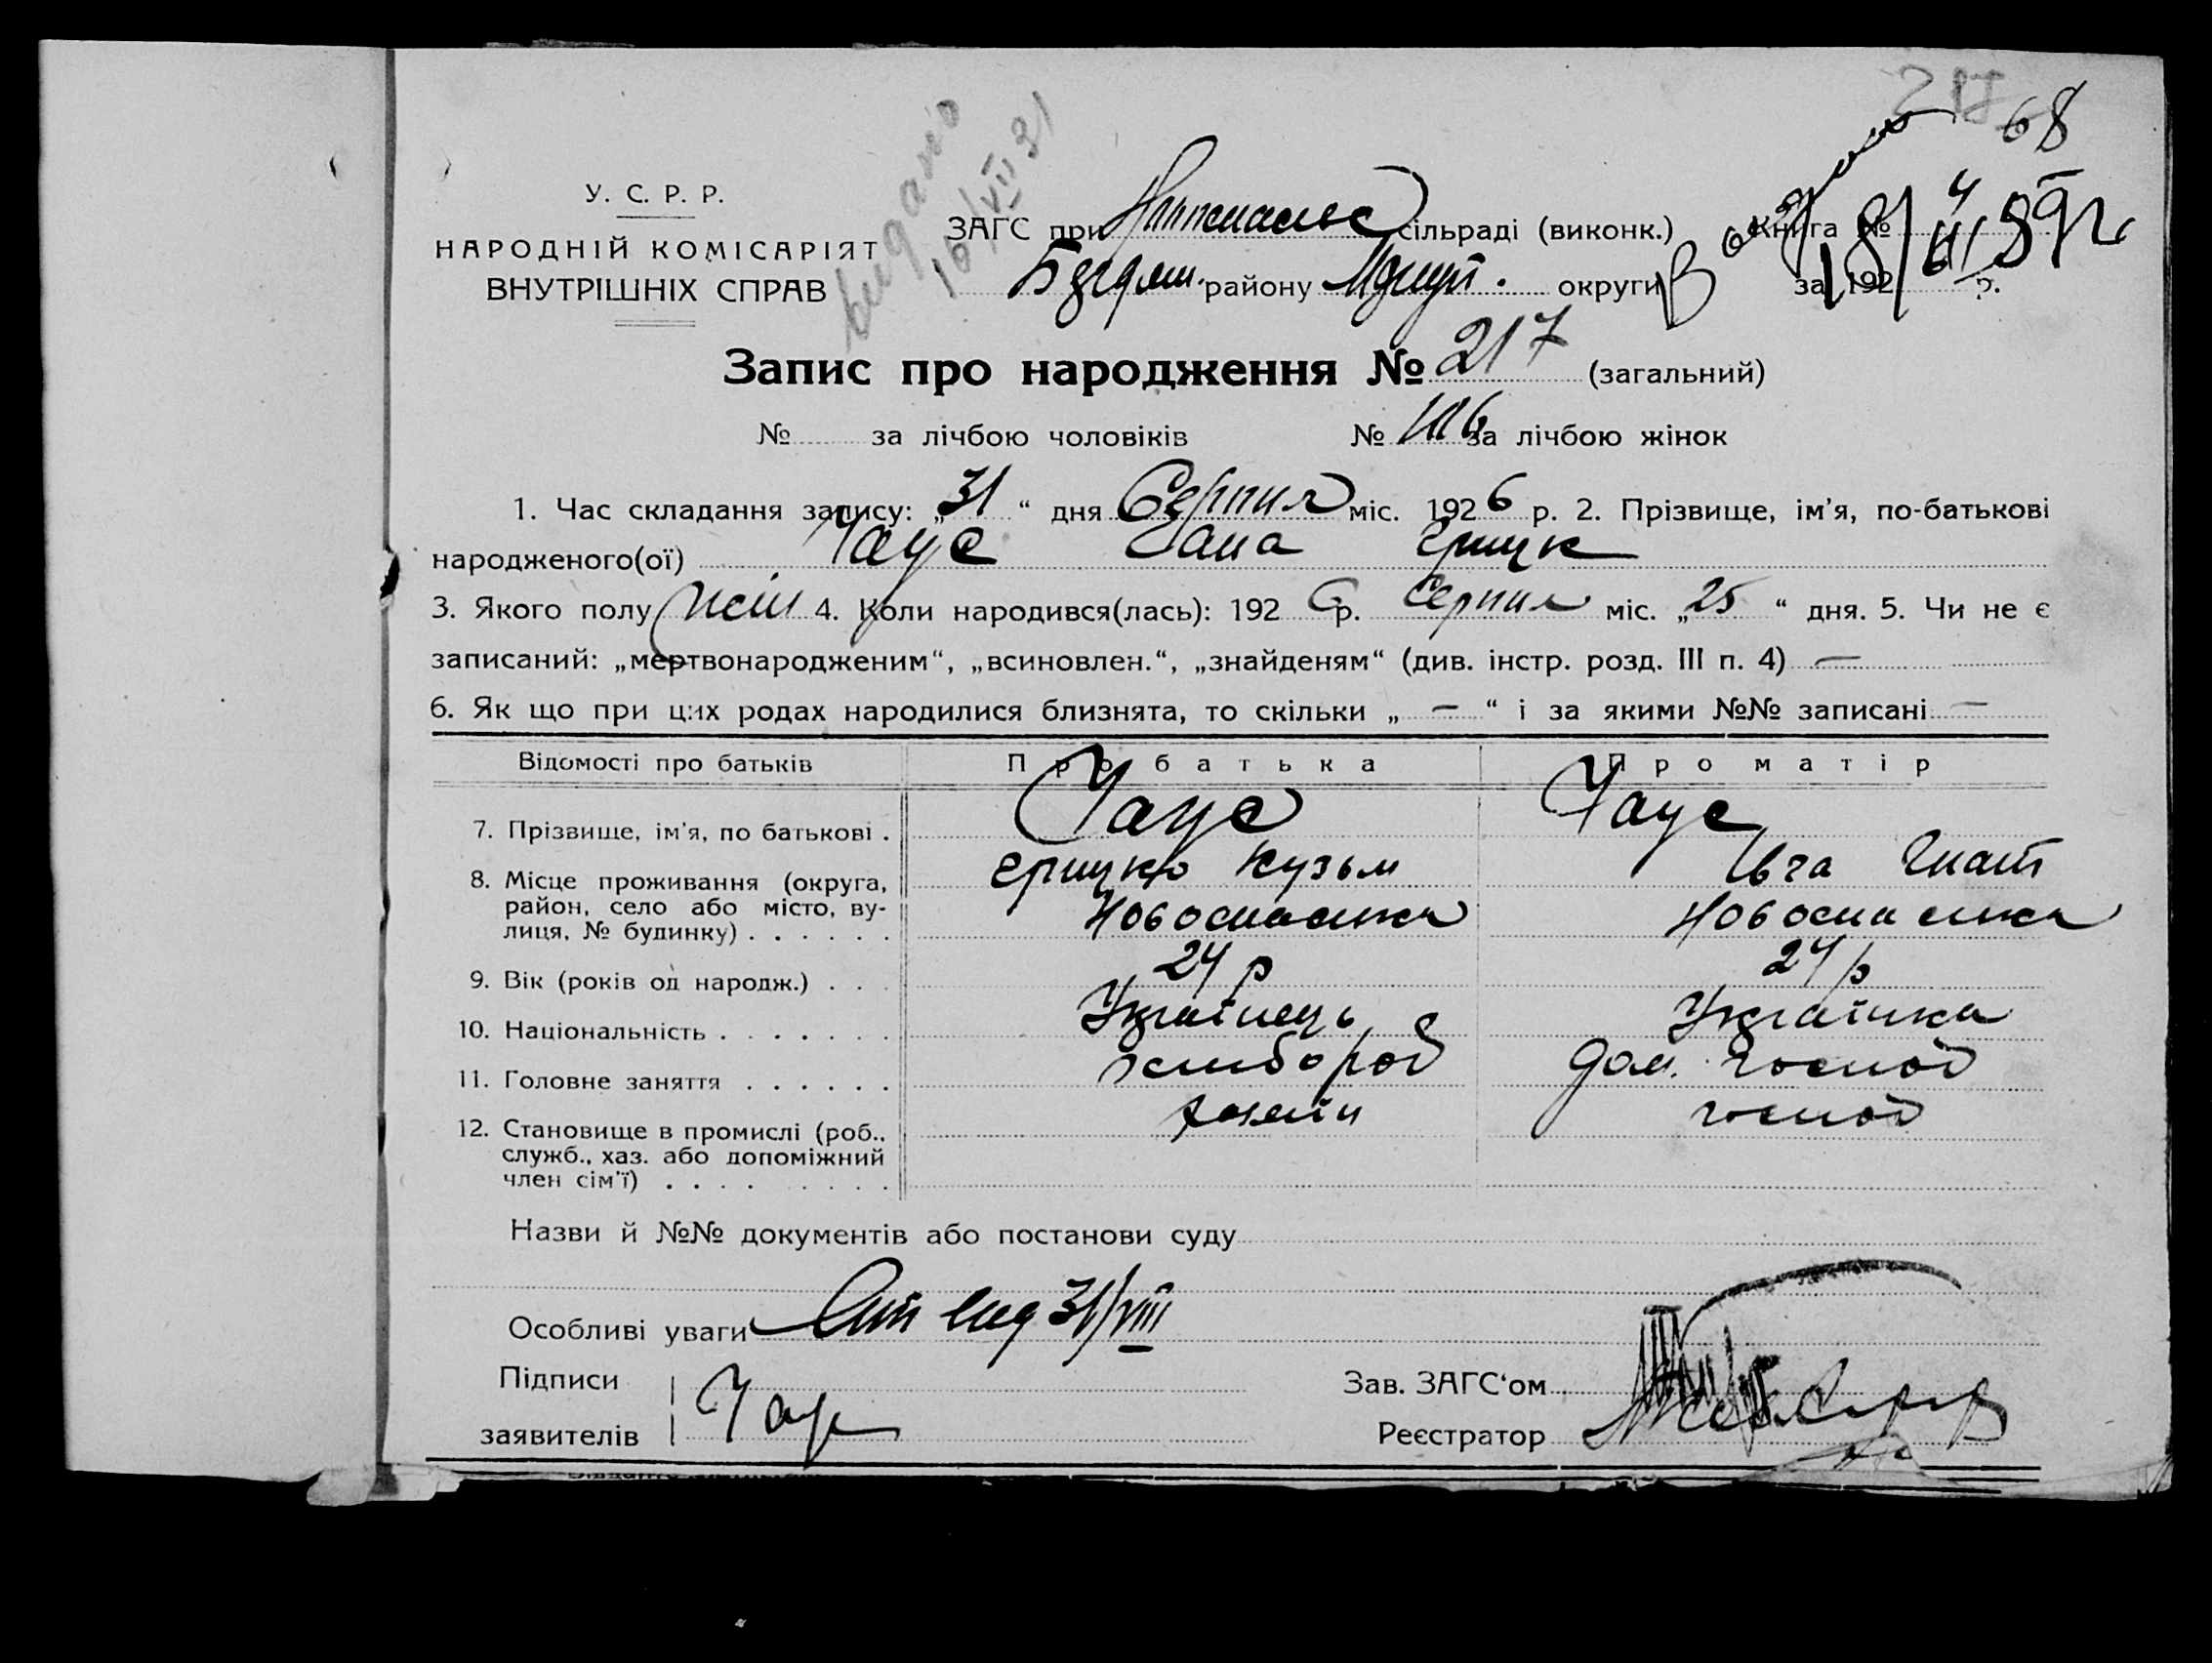 217
68
видано
16/VII 31
У. С. Р. Р.
НАРОДНІЙ КОМІСАРІЯТ
ВНУТРІШНІХ СПРАВ
ЗАГС при сільраді (виконк.) Книга №
району округи за 192 р.
Запис про народження № 217 (загальний)
№ за лічбою чоловіків № 106 за лічбою жінок
1. Час складання запису: „31“ дня Серпня міс. 1926 р. 2. Прізвище, ім'я, по-батькові
народженого(ої) Чаус
3. Якого полу жін 4. Коли народився(лась): 1926 р. Серпня міс. „25“ дня. 5. Чи не є
записаний: „мертвонародженим“, „всиновлен.“, „знайденям“ (див. інстр. розд. III п. 4) —
6. Як що при цих родах народилися близнята, то скільки „ — “ і за якими №№ записані —
Відомості про батьків Про батька Про матір
7. Прізвище, ім'я, по батькові . Чаус Чаус
Кузьм Гнат
8. Місце проживання (округа,
район, село або місто, ву-
лиця, № будинку) . . . . . . Новоспаська Новоспаська
9. Вік (років од народж.) . . . 24 р 24 р
10. Національність . . . . . . . Українець Українка
11. Головне заняття . . . . . . хлібороб дом. господ
12. Становище в промислі (роб.,
служб., хаз. або допоміжний
член сім'ї) . . . . . . . . . хазяїн господ
Назви й №№ документів або постанови суду
Особливі уваги вид 31/VIII
Підписи
заявителів Чаус
Зав. ЗАГС'ом
Реєстратор